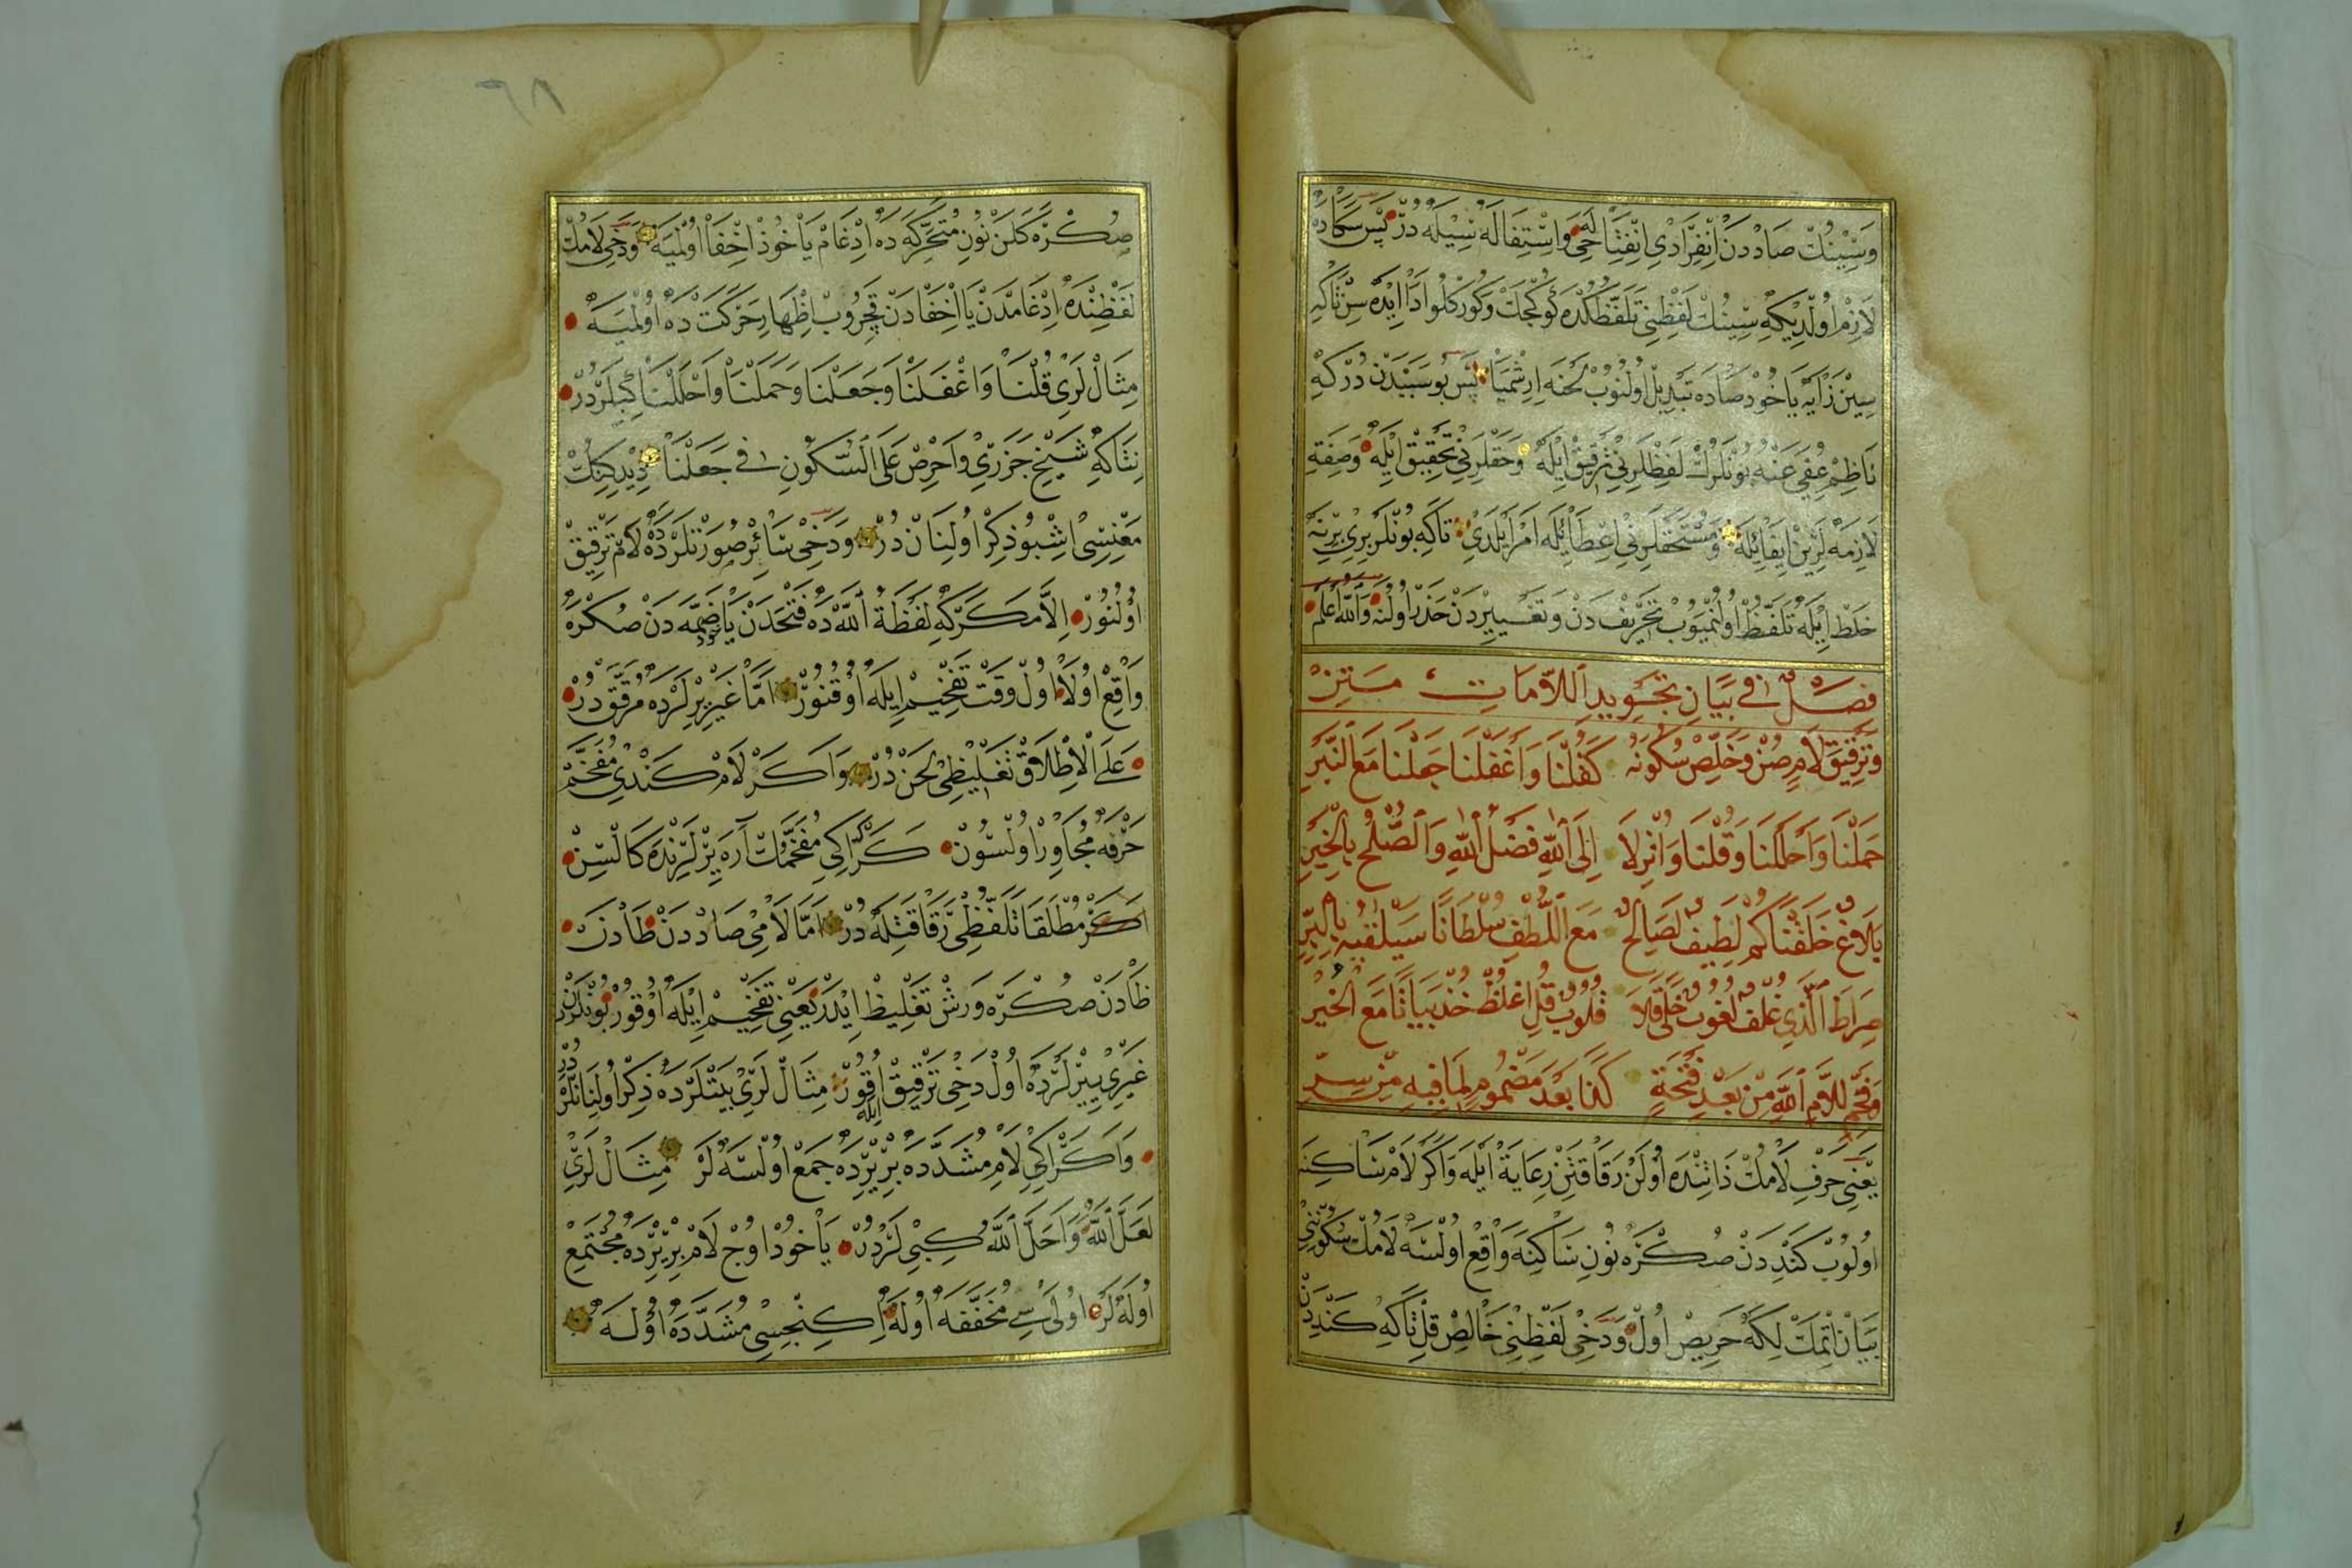 وَسِينُكْ صَاددن اِنْفِرَادِي اِنْفِتَاحِي وَاِسْتِفَالَه سِيلَه دُرْ پَس سَكَادَه
لَازِمْ اُولْدِيكِه سِينُكْ لَفْظِنِي تَلَفُّظكْدَه كُوكْچَكْ وَكُوركْلُو اَدَا اِيدَه سِنْ تَاكِه
سِينْ زَايَه يَاخُودْ صَادَه تَبْدِيل اُولُنُوبْ لَحْنَه اِرِشْمَيَا پَس بُو سَبَبْدَنْ دُرْكِه
نَاظِمْ عُفِيَ عَنْهُ بُونْلَرُكْ لَفْظَلَرِنِي تَرْقِيقْ اِيلَه وَحَقْلَرِنِي تَحْقِيقْ اِيلَه وَصِفَةِ
لَازِمَه لَرِينْ اِيفَا اِيلَه وَمُسْتَحَقْلَرِنِي اِعْطَا اِيلَه اَمْر اَيْلَدِي تَاكِه بُونْلَر بِرِي بِرِينَه
خَلْط اِيلَه تَلَفُّظْ اُولُنْمَيُوبْ تَحْرِيفْ دَنْ وَتَغْيِيرْدَنْ حَذَرْ اُولُنَه وَاللهُ اَعْلَمُ
فَصْلٌ فِي بَيَانِ تَجْوِيدِ اللَّامَاتِ مَتِنْ
وَتَرْقِيقَ لَامٍ صُنْ وَخَلِّصْ سُكُونَهُ كَقُلْنَا وَاَغْفَلْنَا جَعَلْنَا مَعَ النَّبْرِ
حَمَلْنَا وَاَحْلَلْنَا وَقُلْنَا وَاُنْزِلَا اِلَى اللهِ فَضْلُ اللهِ وَالصُّلْحُ بِالْخَيْرِ
بَلَاغٌ خَلَقْنَاكُمْ لَطِيفٌ لَصَالِحٌ مَعَ اللُّطْفِ سُلْطَانًا سَيَلْقَيْهِ بِالْبِرِّ
صِرَاطَ الَّذِي غُلْفٌ لُغُوبٌ خَلَاقًلَا قُلُوبٌ قُلِ اغْلُظْ خُذْ بَيَانًا مَعَ الْخَيْرِ
وَفَخِّمْ لِلَامِ اللهِ مِنْ بَعْدِ فَتْحَةٍ كَذَا بَعْدَ مَضْمُومٍ لِمَا فِيهِ مِنْ سِرِّ
يَعْنِي حَرْفِ لَامُكْ ذَاتِنْدَه اُولَنْ رَقَاقَتِنْ رِعَايَةْ اَيْلَه وَاَكَرْ لَامْ سَاكِنَه
اُولُوبْ كَنْدِدَنْ صُكْرَه نُونِ سَاكِنَه وَاقِعْ اُولْسَه لَامُكْ سُكُونِنِي
بَيَانْ اِتْمَكْ لِكَه حَرِيصْ اُولْ وَدَخِي لَفْظِنِي خَالِصْ قِلْ تَاكِه كَنْدِدَنْ
٦٨
صُكْرَه كَلَنْ نُونِ مُتَحَرِّكَه دَه اِدْغَامْ يَاخُوذْ اِخْفَا اُولْمَيَه وَدَخِي لَامُكْ
لَفْظِنْدَه اِدْغَامْدَنْ يَا اِخْفَادَنْ قَچِرُوبْ اِظْهَارِ حَرَكَتْ دَه اُولْمَيَه
مِثَالْ لَرِي قُلْنَا وَاَغْفَلْنَا وَجَعَلْنَا وَحَمَلْنَا وَاَحْلَلْنَا كِبِيلَرْدُرْ
نِتَاكِه شَيْخِ جَزَرِي وَاحْرِصْ عَلَى السُّكُونِ فِي جَعَلْنَا دِيدِكِنِكْ
مَعْنِيسِي اِشْبُو ذِكْرْ اُولُنَانْ دُرْ وَدَخِي سَائِرْ صُورَتْلَرْدَه لَامْ تَرْقِيقْ
اُولُنُورْ اِلَّا مَكَرْكِه لَفْظَةُ اللهْ دَه فَتْحَدَنْ يَاخُودْ ضَمَّه دَنْ صُكْرَه
وَاقِعْ اُولَا اُولْ وَقْت تَفْخِيمْ اِيلَه اُوقُنُورْ اَمَّا غَيْرِيرْلَرْدَه مُرَقَّقْ دُرْ
عَلَى الْاِطْلَاقْ تَغْلِيظِي لَحَنْ دُرْ وَاَكَرْ لَامْ كَنْدِي مُفَخَّمْ
حَرْفَه مُجَاوِرْ اُولْسُونْ كَرَكْ اِكِي مُفَخَّمُكْ آرَه يِرْلَرِنْدَه كَالْسِنْ
اَكَرْ مُطْلَقَا تَلَفُّظِي رَقَاقَتِلَه دُرْ اَمَّا لَامِي صَاددَنْ طَادَنْ
ظَادَنْ صُكْرَه وَرَشْ تَغْلِيظْ اِيدَرْ يَعْنِي تَفْخِيمْ اِيلَه اُوقُورْ بُونْلَرْدَنْ
غَيْرِي يِيرْلَرْدَه اُولْ دَخِي تَرْقِيقْ اِيلَه اُوقُورْ مِثَالْ لَرِي بَيْتْلَرْدَه ذِكْر اُولُنَانْلَرْدُرْ
وَاَكَرْ اِكِي لَامِ مُشَدَّدَه بِرْ يِرْدَه جَمْعْ اُولْسَه لَرْ مِثَالْ لَرِي
لَعَلَّ اللهَ وَاَحَلَّ اللهُ كِبِي لَرْدُرْ يَاخُودْ اُوچْ لَامْ بِرْ يِرْدَه مُجْتَمِعْ
اُولَه لَرْ اُولَى سِي مُخَفَّفَه اُولَه اِكِنْجِيسِي مُشَدَّدَه اُولَه